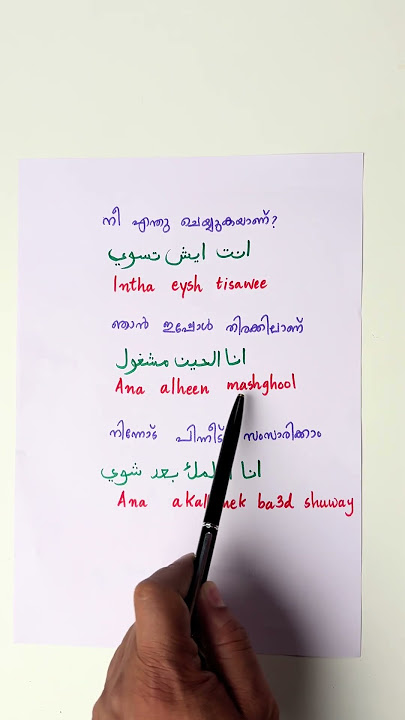 നീ എന്തു ചെയ്യുകയാണ്?
انت ايش تسوي
Intha eysh tisawee
ഞാൻ ഇപ്പോൾ തിരക്കിലാണ്
انا الحين مشغول
Ana alheen mashghool
നിന്നോട് പിന്നീട് സംസാരിക്കാം
انا بعد شوي
Ana ba3d shuway